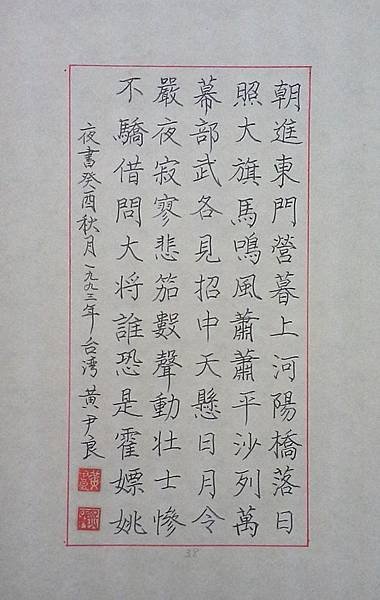 朝進東門營暮上河陽橋落日
照大旗馬鳴風蕭蕭平沙列萬
幕部武各見招中天懸日月令
嚴夜寂寥悲笳數聲動壯士慘
不驕借問大将誰恐是霍嫖姚
夜書癸酉秋月一九九三年台湾黄尹良
38